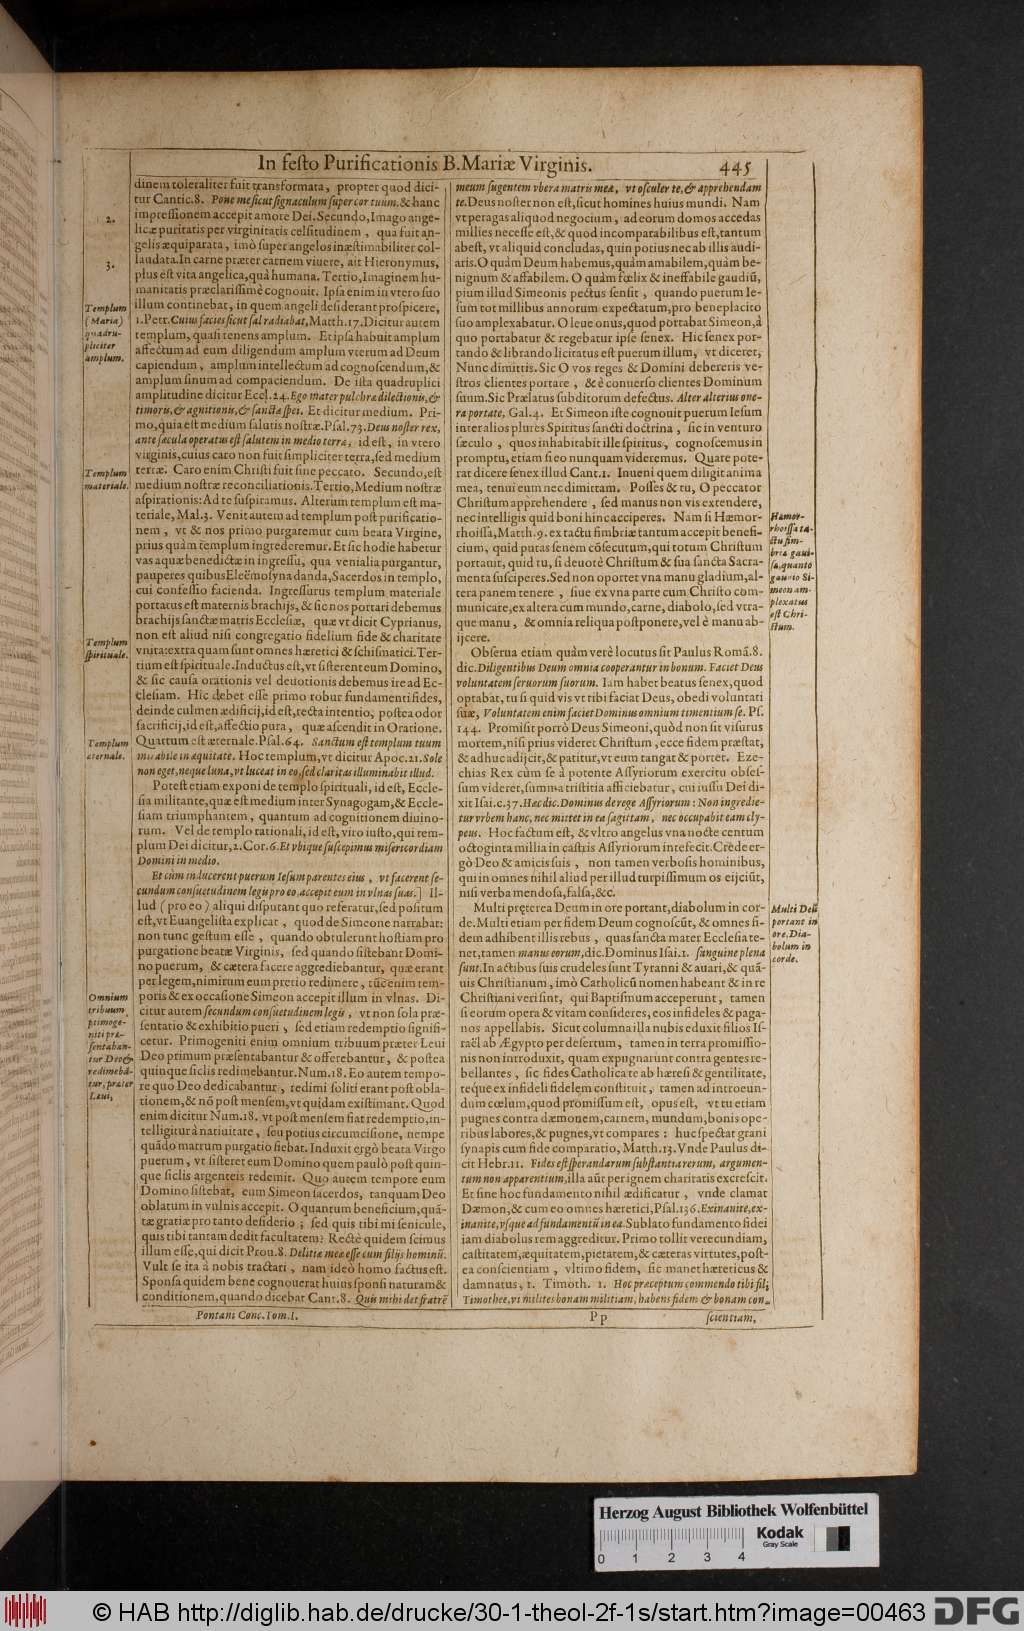 In festo Purificationis B. Mariæ Virginis. 445
dinem toleraliter fuit transformata, propter quod dici-
tur Cantic.8. Pone me sicut signaculum super cor tuum. & hanc
impressionem accepit amore Dei. Secundo, Imago ange-
licæ puritatis per virginitatis celsitudinem, qua fuit an-
gelis æquiparata, imò super angelos inæstimabiliter col-
laudata. In carne præter carnem viuere, ait Hieronymus,
plus est vita angelica, quâ humana. Tertio, Imaginem hu-
manitatis præclarissimè cognouit. Ipsa enim in vtero suo
illum continebat, in quem angeli desiderant prospicere,
1.Petr. Cuius facies sicut sol radiabat, Matth.17. Dicitur autem
templum, quasi tenens amplum. Et ipsa habuit amplum
affectum ad eum diligendum amplum vterum ad Deum
capiendum, amplum intellectum ad cognoscendum, &
amplum sinum ad compaciendum. De ista quadruplici
amplitudine dicitur Eccl.24. Ego mater pulchræ dilectionis, &
timoris, & agnitionis, & sanctæ spei. Et dicitur medium. Pri-
mo, quia est medium salutis nostræ. Psal.73. Deus noster rex,
ante sæcula operatus est salutem in medio terræ, id est, in vtero
virginis, cuius caro non fuit simpliciter terra, sed medium
terræ. Caro enim Christi fuit sine peccato. Secundo, est
medium nostræ reconciliationis. Tertio, Medium nostræ
aspirationis: Ad te suspiramus. Alterum templum est ma-
teriale, Mal.3. Venit autem ad templum post purificatio-
nem, vt & nos primo purgaremur cum beata Virgine,
prius quàm templum ingrederemur. Et sic hodie habetur
vas aquæ benedictæ in ingressu, qua venialia purgantur,
pauperes quibus Eleëmosyna danda, Sacerdos in templo,
cui confessio facienda. Ingressurus templum materiale
portatus est maternis brachijs, & sic nos portari debemus
brachijs sanctæ matris Ecclesiæ, quæ vt dicit Cyprianus,
non est aliud nisi congregatio fidelium fide & charitate
vnita: extra quam sunt omnes hæretici & schismatici. Ter-
tium est spirituale. Inductus est, vt sisterent eum Domino,
& sic causa orationis vel deuotionis debemus ire ad Ec-
clesiam. Hic debet esse primo robur fundamenti fides,
deinde culmen ædificij, id est, recta intentio, postea odor
sacrificij, id est, affectio pura, quæ ascendit in Oratione.
Quartum est æternale. Psal.64. Sanctum est templum tuum
mirabile in æquitate. Hoc templum, vt dicitur Apoc.21. Sole
non eget, neque luna, vt luceat in eo, sed claritas illuminabit illud.
Potest etiam exponi de templo spirituali, id est, Eccle-
sia militante, quæ est medium inter Synagogam, & Eccle-
siam triumphantem, quantum ad cognitionem diuino-
rum. Vel de templo rationali, id est, viro iusto, qui tem-
plum Dei dicitur, 2.Cor.6. Et vbique suscepimus misericordiam
Domini in medio.
Et cùm inducerent puerum Iesum parentes eius, vt facerent se-
cundum consuetudinem legis pro eo, accepit eum in vlnas suas.] Il-
lud (pro eo) aliqui disputant quo referatur, sed positum
est, vt Euangelista explicat, quod de Simeone narrabat:
non tunc gestum esse, quando obtulerunt hostiam pro
purgatione beatæ Virginis, sed quando sistebant Domi-
no puerum, & cætera facere aggrediebantur, quæ erant
per legem, nimirum eum pretio redimere, tūc enim tem-
poris & ex occasione Simeon accepit illum in vlnas. Di-
citur autem secundum consuetudinem legis, vt non sola præ-
sentatio & exhibitio pueri, sed etiam redemptio signifi-
cetur. Primogeniti enim omnium tribuum præter Leui
Deo primum præsentabantur & offerebantur, & postea
quinque siclis redimebantur. Num.18. Eo autem tempo-
re quo Deo dedicabantur, redimi soliti erant post obla-
tionem, & nō post mensem, vt quidam existimant. Quod
enim dicitur Num.18. vt post mensem fiat redemptio, in-
telligitur à natiuitate, seu potius circumcisione, nempe
quādo matrum purgatio fiebat. Induxit ergò beata Virgo
puerum, vt sisteret eum Domino quem paulò post quin-
que siclis argenteis redemit. Quo autem tempore eum
Domino sistebat, eum Simeon sacerdos, tanquam Deo
oblatum in vulnis accepit. O quantum beneficium, quā-
tæ gratiæ pro tanto desiderio; sed quis tibi mi senicule,
quis tibi tantam dedit facultatem? Rectè quidem scimus
illum esse, qui dicit Prou.8. Delitiæ meæ esse cum filijs hominū.
Vult se ita à nobis tractari, nam ideò homo factus est.
Sponsa quidem bene cognouerat huius sponsi naturam &
conditionem, quando dicebat Cant.8. Quis mihi det fratrē
2.
3.
Templum
(Maria)
quadru-
pliciter
amplum.
Templum
materiale.
Templum
spirituale.
Templum
æternale.
Omnium
tribuum
primoge-
niti præ-
sentaban-
tur Deo &
redimebā-
tur, præter
Leui,
meum sugentem vbera matris meæ, vt osculer te, & apprehendam
te. Deus noster non est, sicut homines huius mundi. Nam
vt peragas aliquod negocium, ad eorum domos accedas
millies necesse est, & quod incomparabilibus est, tantum
abest, vt aliquid concludas, quin potius nec ab illis audi-
aris. O quàm Deum habemus, quàm amabilem, quàm be-
nignum & affabilem. O quàm fœlix & ineffabile gaudiū,
pium illud Simeonis pectus sensit, quando puerum Ie-
sum tot millibus annorum expectatum, pro beneplacito
suo amplexabatur. O leue onus, quod portabat Simeon, à
quo portabatur & regebatur ipse senex. Hic senex por-
tando & librando licitatus est puerum illum, vt diceret,
Nunc dimittis. Sic O vos reges & Domini debereris ve-
stros clientes portare, & è conuerso clientes Dominum
suum. Sic Prælatus subditorum defectus. Alter alterius one-
ra portate, Gal.4. Et Simeon iste cognouit puerum Iesum
inter alios plures Spiritus sancti doctrina, sic in venturo
sæculo, quos inhabitabit ille spiritus, cognoscemus in
promptu, etiam si eo nunquam videremus. Quare pote-
rat dicere senex illud Cant.1. Inueni quem diligit anima
mea, tenui eum nec dimittam. Posses & tu, O peccator
Christum apprehendere, sed manus non vis extendere,
nec intelligis quid boni hinc acciperes. Nam si Hæmor-
rhoissa, Matth.9. ex tactu fimbriæ tantum accepit benefi-
cium, quid putas senem cōsecutum, qui totum Christum
portauit, quid tu, si deuotè Christum & sua sancta Sacra-
menta susciperes. Sed non oportet vna manu gladium, al-
tera panem tenere, siue ex vna parte cum Christo com-
municare, ex altera cum mundo, carne, diabolo, sed vtra-
que manu, & omnia reliqua postponere, vel è manu ab-
ijcere.
Obserua etiam quàm verè locutus sit Paulus Romā.8.
dic. Diligentibus Deum omnia cooperantur in bonum. Faciet Deus
voluntatem seruorum suorum. Iam habet beatus senex, quod
optabat, tu si quid vis vt tibi faciat Deus, obedi voluntati
suæ, Voluntatem enim faciet Dominus omnium timentium se. Ps.
144. Promisit porrò Deus Simeoni, quòd non sit visurus
mortem, nisi prius videret Christum, ecce fidem præstat,
& adhuc adijcit, & patitur, vt eum tangat & portet. Eze-
chias Rex cùm se à potente Assyriorum exercitu obses-
sum videret, summa tristitia afficiebatur, cui iussu Dei di-
xit Isai.c.37. Hæc dic. Dominus de rege Assyriorum: Non ingredie-
tur vrbem hanc, nec mittet in ea sagittam, nec occupabit eam cly-
peus. Hoc factum est, & vltro angelus vna nocte centum
octoginta millia in castris Assyriorum intefecit. Crede er-
gò Deo & amicis suis, non tamen verbosis hominibus,
qui in omnes nihil aliud per illud turpissimum os eijciūt,
nisi verba mendosa, falsa, &c.
Multi pręterea Deum in ore portant, diabolum in cor-
de. Multi etiam per fidem Deum cognoscūt, & omnes fi-
dem adhibent illis rebus, quas sancta mater Ecclesia te-
net, tamen manus eorum, dic. Dominus Isai.1. sanguine plena
sunt. In actibus suis crudeles sunt Tyranni & auari, & quā-
uis Christianum, imò Catholicū nomen habeant & in re
Christiani veri sint, qui Baptismum acceperunt, tamen
si eorum opera & vitam consideres, eos infideles & paga-
nos appellabis. Sicut columna illa nubis eduxit filios Is-
raël ab Ægypto per desertum, tamen in terra promissio-
nis non introduxit, quam expugnarunt contra gentes re-
bellantes, sic fides Catholica te ab hæresi & gentilitate,
teque ex infideli fidelem constituit, tamen ad introeun-
dum cœlum, quod promissum est, opus est, vt tu etiam
pugnes contra dæmonem, carnem, mundum, bonis ope-
ribus labores, & pugnes, vt compares: huc spectat grani
synapis cum fide comparatio, Matth.13. Vnde Paulus di-
cit Hebr.11. Fides est sperandarum substantia rerum, argumen-
tum non apparentium, illa aūt per ignem charitatis excrescit.
Et sine hoc fundamento nihil ædificatur, vnde clamat
Dæmon, & cum eo omnes hæretici, Psal.136. Exinanite, ex-
inanite, vsque ad fundamentū in ea. Sublato fundamento fidei
iam diabolus rem aggreditur. Primo tollit verecundiam,
castitatem, æquitatem, pietatem, & cæteras virtutes, post-
ea conscientiam, vltimo fidem, sic manet hæreticus &
damnatus, 1. Timoth. 1. Hoc præceptum commendo tibi fili
Timothee, vt milites bonam militiam, habens fidem & bonam con-
Hæmor-
rhoissa ta-
ctu fim-
briæ gaui-
sa, quanto
gauuto Si-
meon am-
plexatus
est Chri-
stum.
Multi Deū
portant in
ore, Dia-
bolum in
corde.
Pontani Conc. Tom. I. Pp scientiam,
Herzog August Bibliothek Wolfenbüttel
Kodak
Gray Scale
0 1 2 3 4
© HAB http://diglib.hab.de/drucke/30-1-theol-2f-1s/start.htm?image=00463 DFG